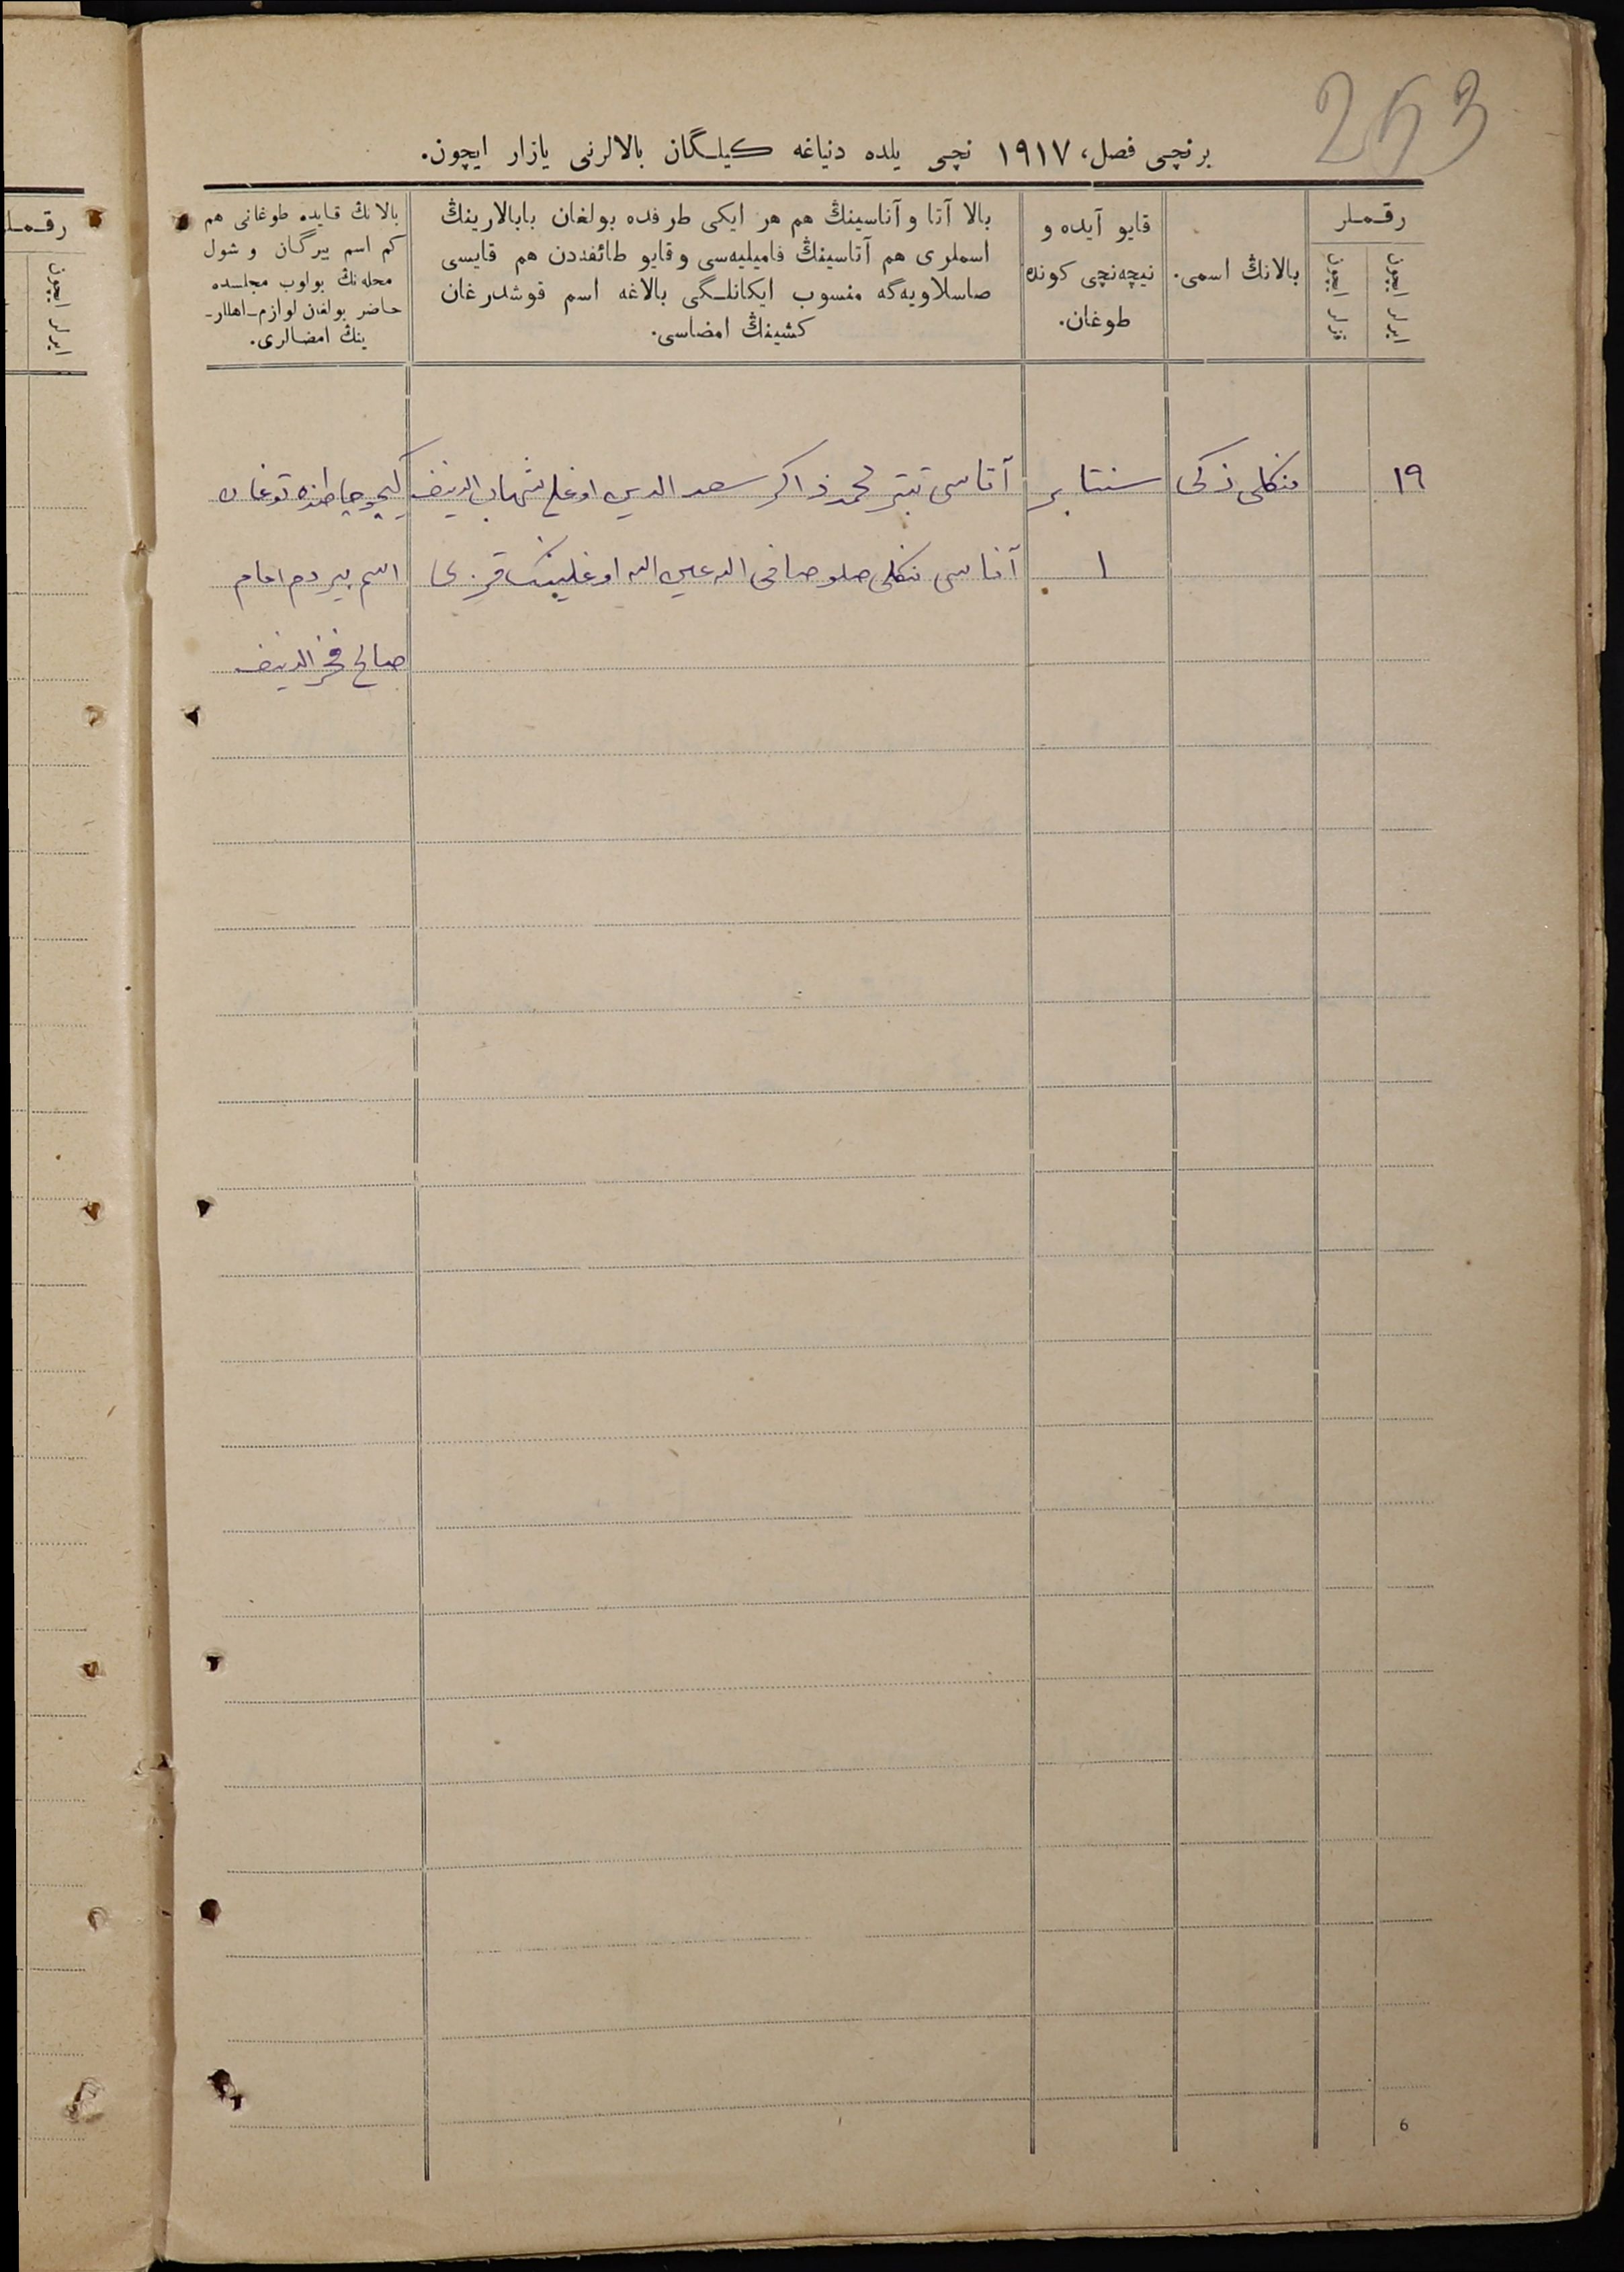 253
برنچی فصل، ١٩١٧ نچی یلده دنیاغه کیلـگان بالالرنی یازار ایچون.
رقـمـلر
ایرلر ایچون
قزلر ایچون
بالانڭ اسمی.
قایو آیده و
نیچه‌نچی کونده
طوغان.
بالا آتا و آناسینڭ هم هر ایکی طرفده بولغان بابالارینڭ
اسملری هم آتاسینڭ فامیلیه‌سی و قایو طائفه‌دن هم قایسی
صاسلاویه‌گه منسوب ایکانلـگی بالاغه اسم قوشدرغان
کشینڭ امضاسی.
بالانڭ قایده طوغانی هم
کم اسم بیرگان و شول
محله‌نڭ بولوب مجلـسده
حاضر بولغان لوازم-اهللر-
ینڭ امضـالری.
رقـمـلر
ایرلر ایچون
١٩
منکلی ذکی
سنتابر
آتاسی تبتر محمد ذاکر سعد الدین اوغلی شهاب الدینف
توغان
١
آناسی منکلی صلو صافی الله اوغلینک قزی
اسم بیردم امام
صالح فخر الدینف
6